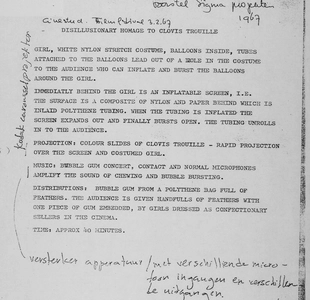 Borstel Sigma projecten
Film Festival 3.2.67 1967
DISILLUSIONARY HOMAGE TO CLOVIS TROUILLE
GIRL, WHITE NYLON STRETCH COSTUME, BALLOONS INSIDE, TUBES
ATTACHED TO THE BALLOONS LEAD OUT OF A HOLE IN THE COSTUME
TO THE AUDIENCE WHO CAN INFLATE AND BURST THE BALLOONS
AROUND THE GIRL.
IMMEDIATELY BEHIND THE GIRL IS AN INFLATABLE SCREEN, I.E.
THE SURFACE IS A COMPOSITE OF NYLON AND PAPER BEHIND WHICH IS
INLAID POLYTHENE TUBING. WHEN THE TUBING IS INFLATED THE
SCREEN EXPANDS OUT AND FINALLY BURSTS OPEN. THE TUBING UNROLLS
IN TO THE AUDIENCE.
PROJECTION: COLOUR SLIDES OF CLOVIS TROUILLE - RAPID PROJECTION
OVER THE SCREEN AND COSTUMED GIRL.
MUSIC: BUBBLE GUM CONCERT, CONTACT AND NORMAL MICROPHONES
AMPLIFY THE SOUND OF CHEWING AND BUBBLE BURSTING.
DISTRIBUTIONS: BUBBLE GUM FROM A POLYTHENE BAG FULL OF
FEATHERS. THE AUDIENCE IS GIVEN HANDFULLS OF FEATHERS WITH
ONE PIECE OF GUM EMBEDED, BY GIRLS DRESSED AS CONFECTIONARY
SELLERS IN THE CINEMA.
TIME: APPROX 40 MINUTES.
Kodak carousel projector
versterker apparatuur / met verschillende micro-
foon ingangen en verschillen-
de uitgangen